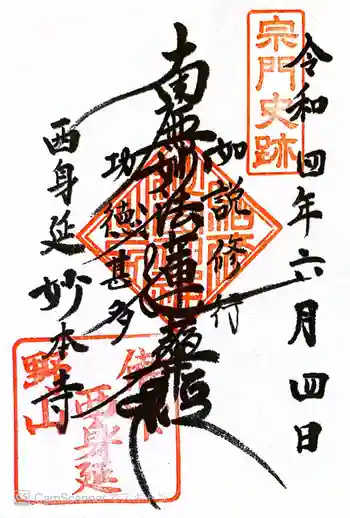 宗門史跡
令和四年六月四日
如説修行
南無妙法蓮華経
功徳甚多
西身延 妙本寺
野山
西身延
CamScanner でスキャン